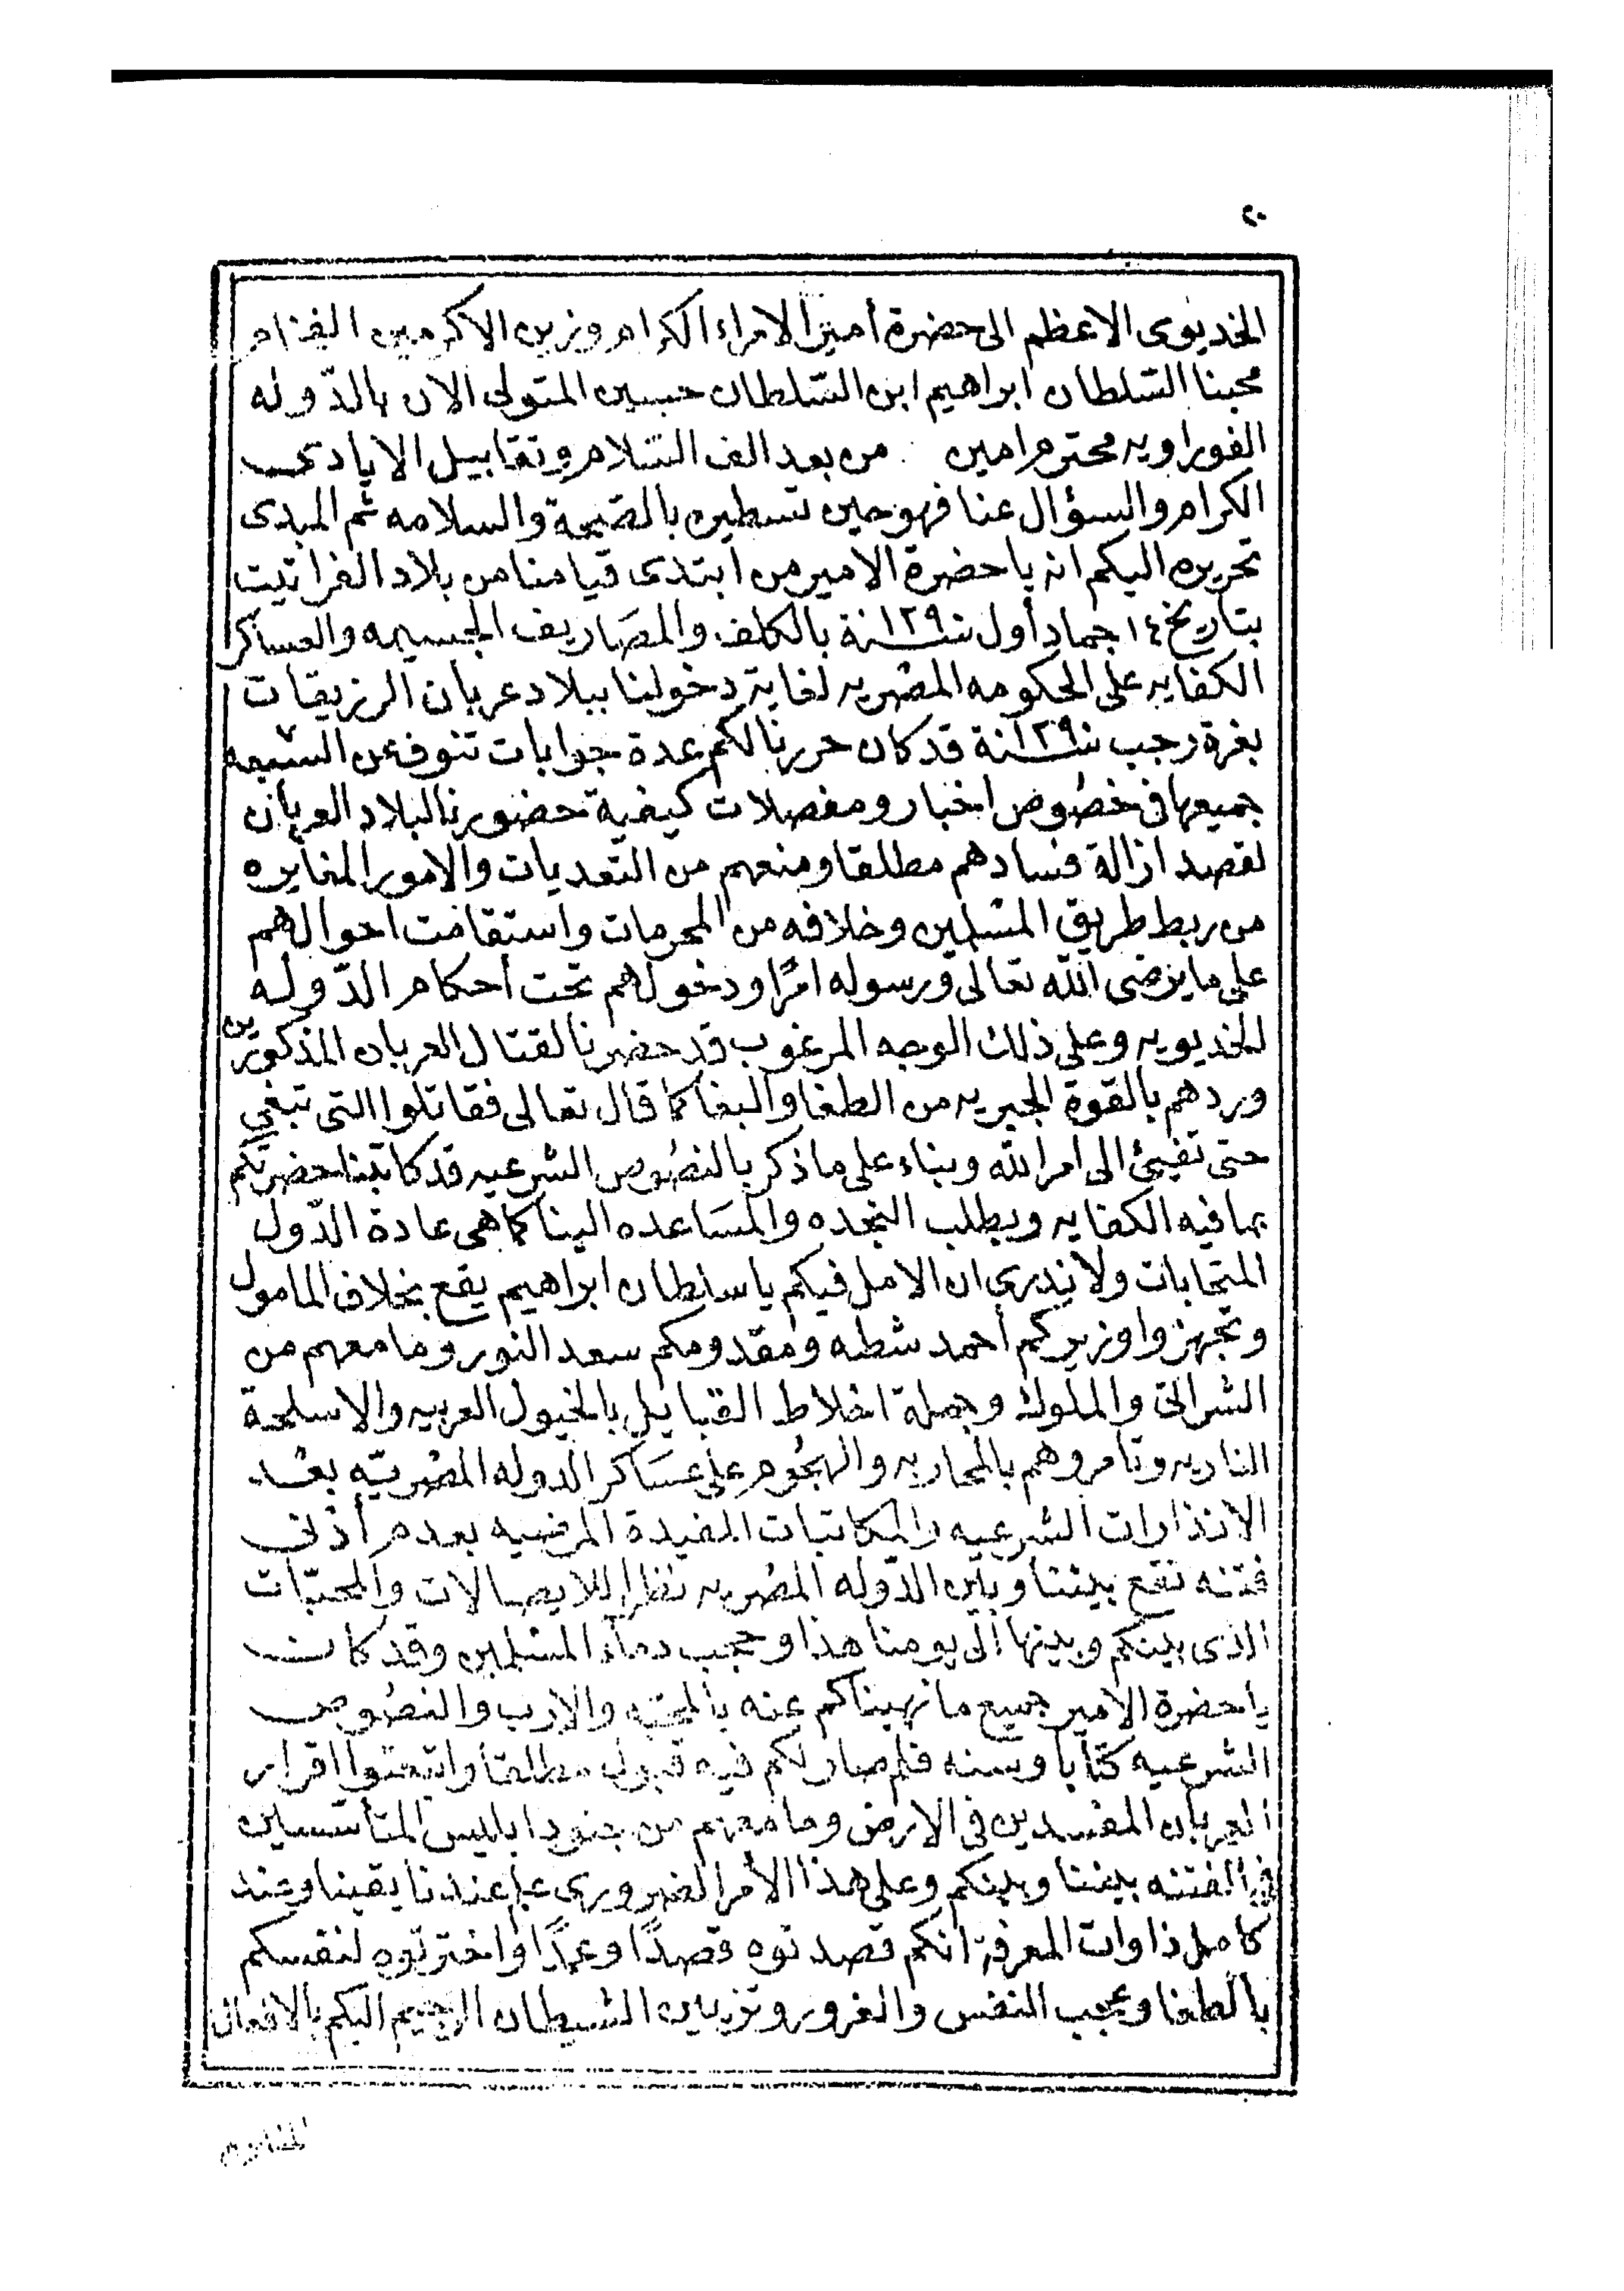 ٢٠
الخديوى الاعظم الى حضرة أمير الامراء الكرام وزين الاكرمين الفخام
محبنا السّلطان ابراهيم ابن السّلطان حسين المتولى الان بالدّوله
الفوراويه محترم امين . من بعد الف السّلام وتقابيل الايادى
الكرام والسؤال عنا فهو حين تسطيره بالصّحة والسلامه ثم المبدى
تحريره اليكم انه يا حضرة الامير من ابتدى قيامنا من بلاد الفراتيت
بتاريخ ١٤ جماد أول سنة ١٢٩٠ بالكلف والمصَاريف الجسيمه والعساكر
الكفايه على الحكومه المصْريه لغاية دخولنا ببلاد عربان الرزيقات
بغرة رجب سنة ١٢٩٠ قد كان حررنا لكم عدة جوابات تنوف عن السبعه
جميعها فى خصُوص اخبار ومفصلات كيفية حضورنا لبلاد العربان
لقصد ازالة فسادهم مطلقا ومنعهم من التّعديات والامور المغايره
من ربط طريق المسْلمين وخلافه من المحرمات واستقامت احوالهم
على ما يرضى الله تعالى ورسوله امرًا ودخولهم تحت أحكام الدّوله
الخديويه وعلى ذلك الوجه المرغوب قد حضرنا لقتال العربان المذكورين
وردهم بالقوة الجبريه من الطغا والبغا كما قال تعالى فقاتلوا التى تبغى
حتى تفيئ الى امر الله وبناء على ما ذكر بالنصُوص الشرعيه قد كاتبنا حضرتكم
بما فيه الكفايه وبطلب النجده والمسَاعده الينا كما هى عادة الدّول
المتحابات ولا ندرى ان الامل فيكم يا سلطان ابراهيم يقع بخلاف المامول
وتجهزوا وزيركم أحمد شطه ومقدومكم سعد النور وما معهم من
الشراتى والملوك وجملة اخلاط القبايل بالخيول العربيه والاسلحة
الناريه وتأمروهم بالمحاربه والهجُوم على عسَاكر الدوله المصْريّه بعْد
الانذارات الشرعيه والمكاتبات المفيدة المرضيه بعدم أدنى
فتنه تقع بيننا وبين الدّوله المصْريه نظرا للايصالات والمحبّات
الذى بينكم وبينها الى يومنا هذا وحجب دماء المسْلمين وقد كانت
يا حضرة الامير جميع ما نهيناكم عنه بالمحبّه والادب والنصُوص
الشرعيه كتابا وسنه فلم صار لكم فيه قبول مطلقا واتبعتوا اقرار
العربان المفسدين فى الارض وما معهم من جنود ابليس المتأسّسين
فى الفتنه بيننا وبينكم وعلى هذا الأمر الضرورى علم عندنا يقينا وعند
كامل ذاوات المعرفة انكم قصدتوه قصدًا وعمدًا واخترتوه لنفسكم
بالطغا وعجب النفس والغرور وتزيين الشيطان الرجيم اليكم بالافعال